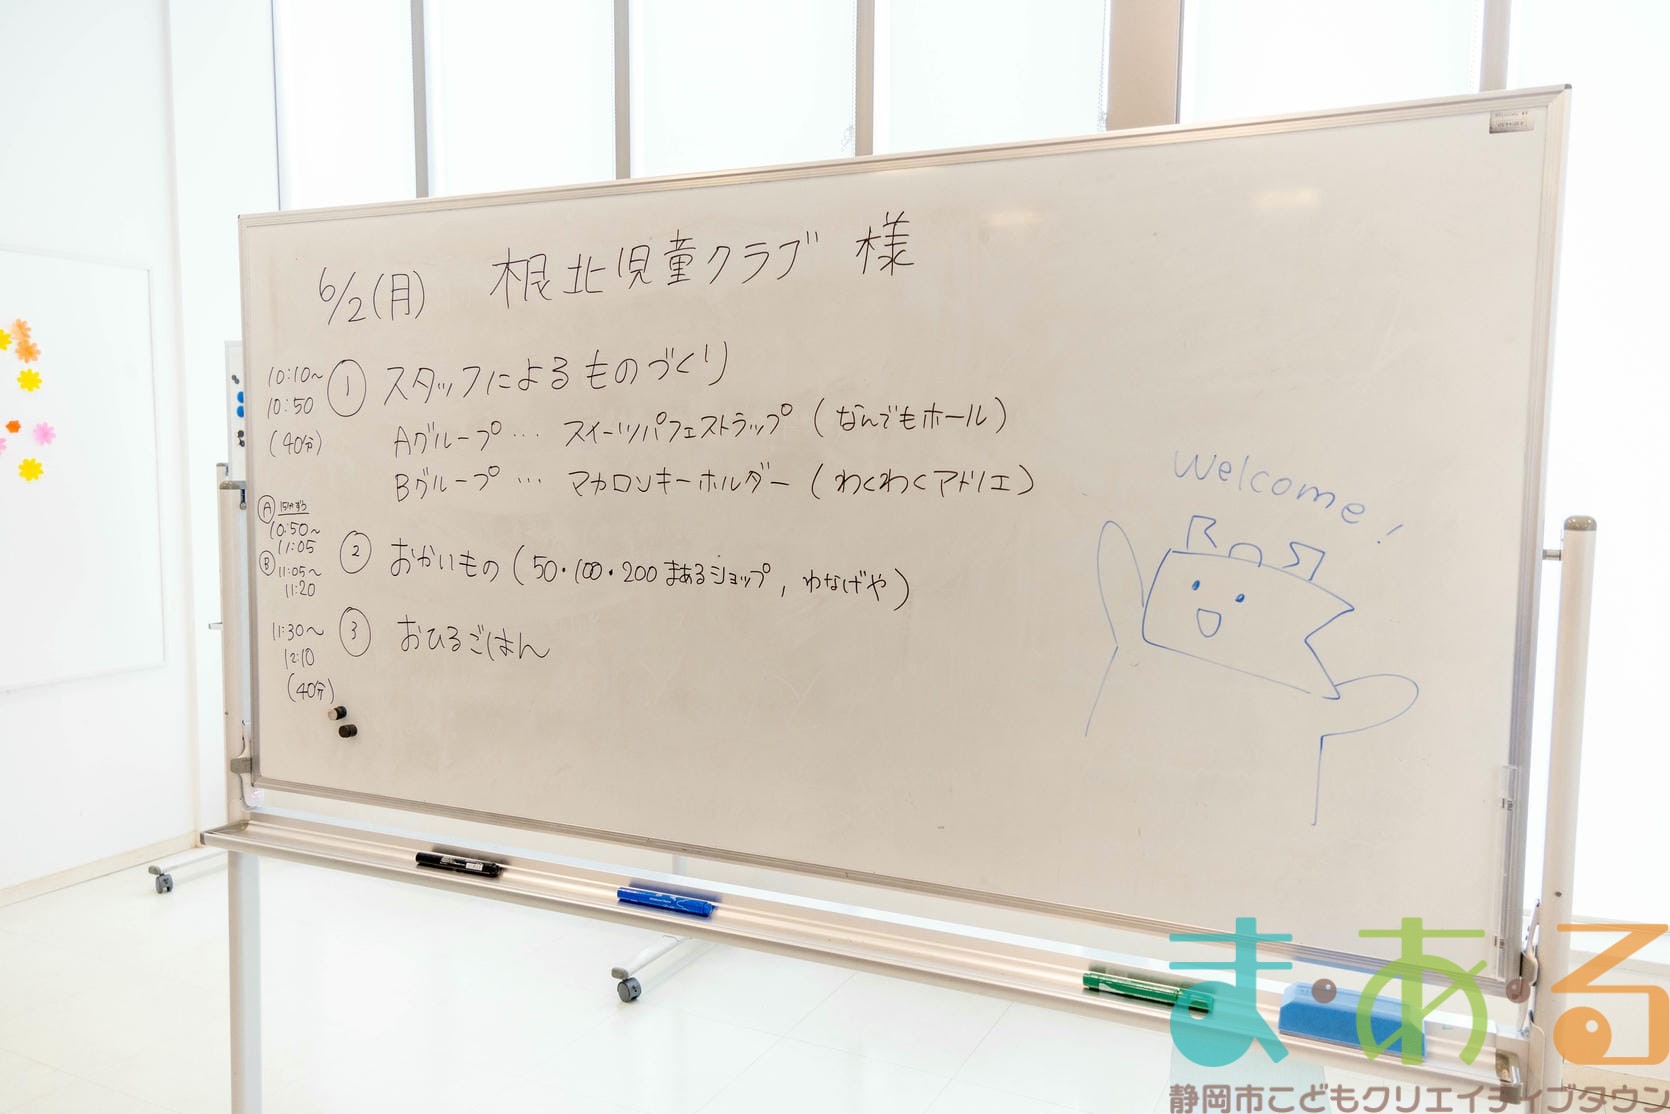 6/2(月) 根北児童クラブ 様
10:10〜
10:50
(40分)
① スタッフによるものづくり
Aグループ … スイーツパフェストラップ (なんでもホール)
Bグループ … マカロンキーホルダー (わくわくアトリエ)
Ⓐ 15分ずつ
10:50〜
11:05
Ⓑ 11:05〜
11:20
② おかいもの (50・100・200 まあるショップ, わなげや)
11:30〜
12:10
(40分)
③ おひるごはん
Welcome!
ま・あ・る
静岡市こどもクリエイティブタウン